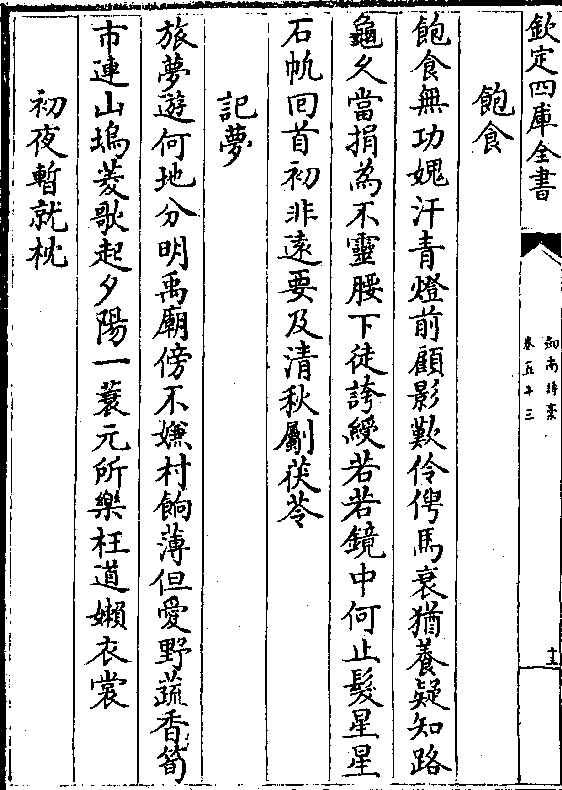 欽定四庫全書
劒南詩稾
卷五十三
十三
飽食
飽食無功媿汗青燈前顧影歎伶俜馬衰猶養疑知路
龜久當捐為不靈腰下徒誇綬若若鏡中何止髮星星
石帆囘首初非遠要及清秋劚茯苓
記夢
旅夢遊何地分明禹廟傍不嫌村餉薄但愛野蔬香筍
市連山塢菱歌起夕陽一蓑元所樂枉道嬾衣裳
初夜暫就枕